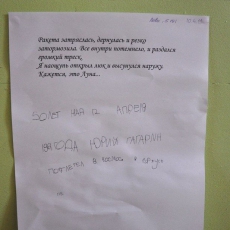 Ракета затряслась, дернулась и резко
затормозила. Все внутри потемнело, и раздался
громкий треск.
Я наощупь открыл люк и высунулся наружу.
Кажется, это Луна...
12 АПРЕЛЯ
ГОДА ЮРИЙ ГАГАРИН
ПОЛЕТЕЛ В КОСМОС